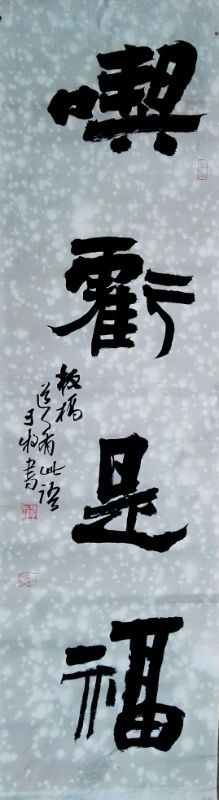 喫虧是福
板橋
道人有此語
書